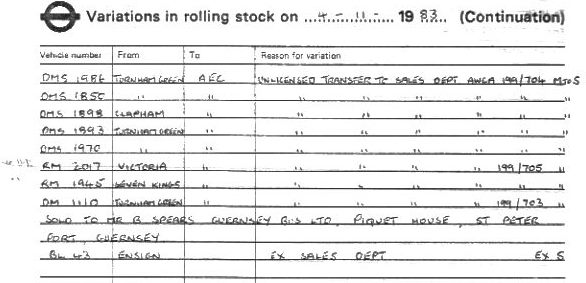 Variations in rolling stock on ...4 - 11 - ... 1983... (Continuation)
Vehicle number From To Reason for variation
DMS 1986 TURNHAM GREEN AEC UNLICENSED TRANSFER TO SALES DEPT AWCA 199/704 M to S
DMS 1850 " " " " " " " "
DMS 1898 CLAPHAM " " " " " " "
DMS 1893 TURNHAM GREEN " " " " " " "
DMS 1970 " " " " " " " "
RM 2017 VICTORIA " " " " 199/705 "
RM 1945 SEVEN KINGS " " " " " " "
DM 1110 TURNHAM GREEN " " " " 199/703 "
SOLD TO MR B SPEARS GUERNSEY BUS LTD, PIQUET HOUSE, ST PETER
PORT, GUERNSEY
BL 43 ENSIGN EX SALES DEPT EX S